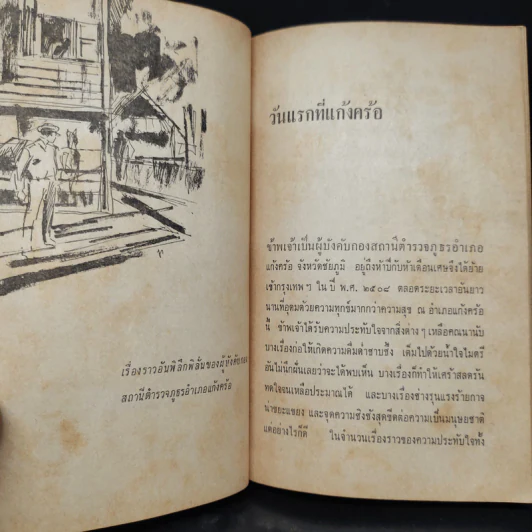 เรื่องราวอันพิลึกพิลั่นของผู้บังคับกอง
สถานีตำรวจภูธรอำเภอแก้งคร้อ
วันแรกที่แก้งคร้อ
ข้าพเจ้าเป็นผู้บังคับกองสถานีตำรวจภูธรอำเภอ
แก้งคร้อ จังหวัดชัยภูมิ อยู่ถึงห้าปีกับห้าเดือนเศษจึงได้ย้าย
เข้ากรุงเทพ ฯ ใน ปี พ.ศ. ๒๕๐๘ ตลอดระยะเวลาอันยาว
นานที่อุดมด้วยความทุกข์มากกว่าความสุข ณ อำเภอแก้งคร้อ
นี้ ข้าพเจ้าได้รับความประทับใจจากสิ่งต่าง ๆ เหลือคณนานับ
บางเรื่องก่อให้เกิดความดื่มด่ำซาบซึ้ง เต็มไปด้วยน้ำใจไมตรี
อันไม่นึกฝันเลยว่าจะได้พบเห็น บางเรื่องก็ทำให้เศร้าสลดรัน
ทดใจจนเหลือประมาณได้ และบางเรื่องช่างรุนแรงร้ายกาจ
น่าขยะแขยง และจุดความชิงชังสุดขีดต่อความเป็นมนุษยชาติ
แต่อย่างไรก็ดี ในจำนวนเรื่องราวของความประทับใจทั้ง